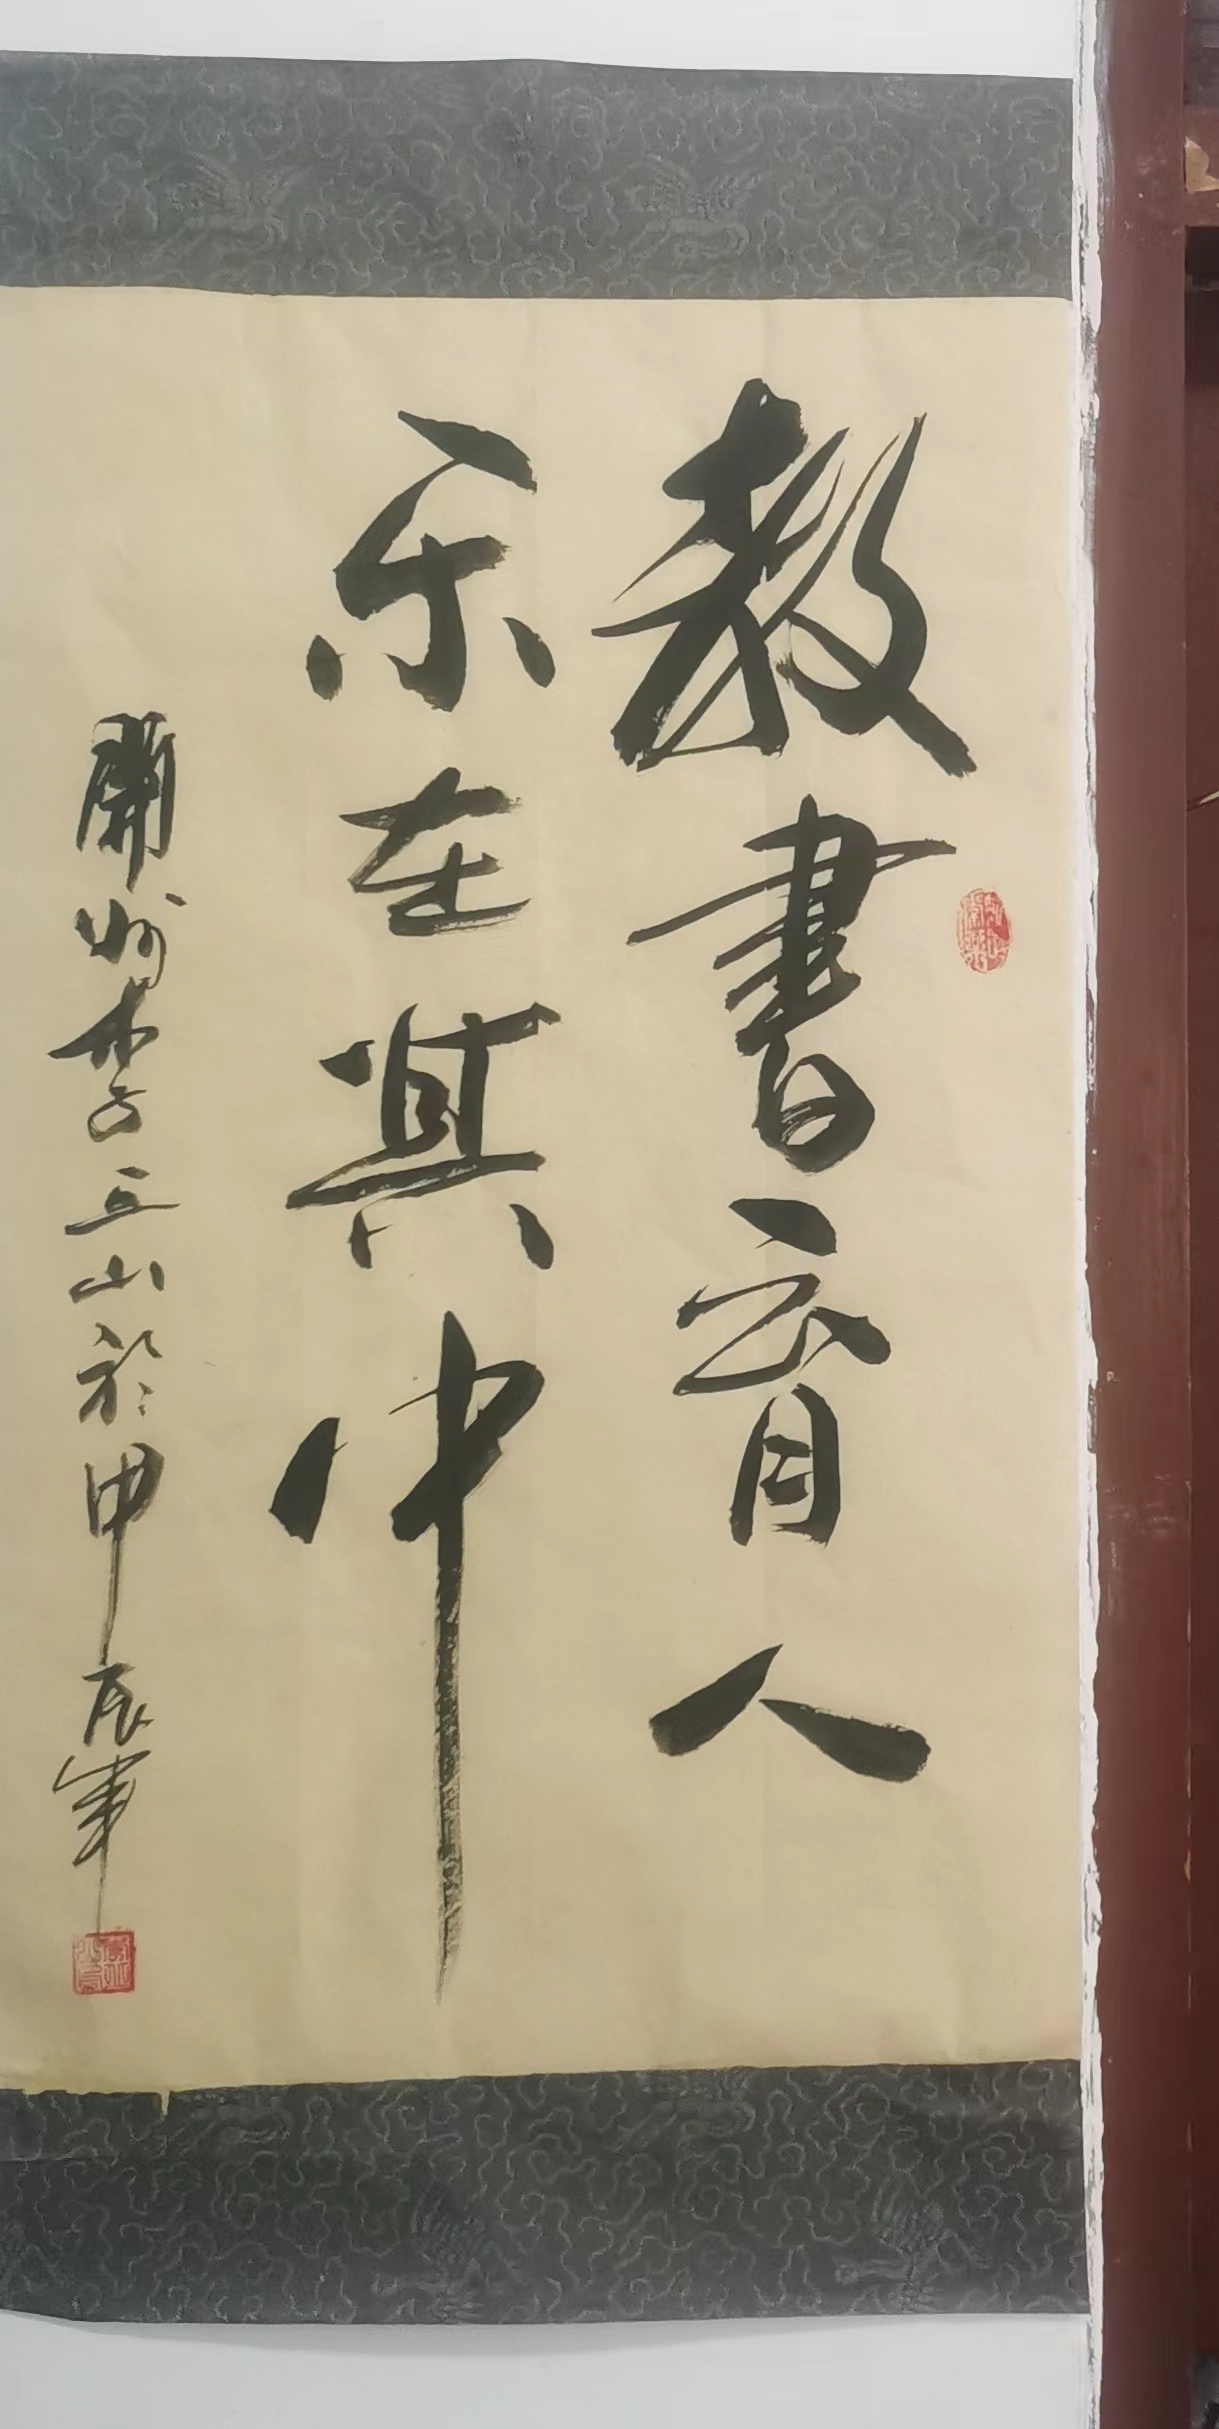 教書育人
乐在其中
開州李立山於甲辰年